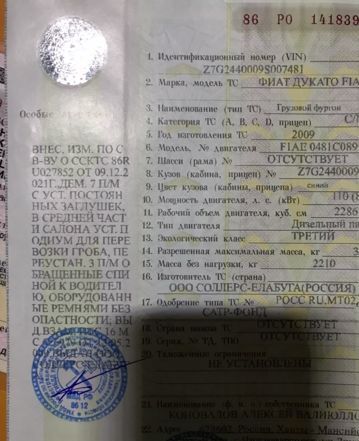 86 РО 141839
1. Идентификационный номер (VIN)
Z7G2440009S007481
2. Марка, модель ТС ФИАТ ДУКАТО FIA
3. Наименование (тип ТС) Грузовой фургон
4. Категория ТС (A, B, C, D, прицеп)
5. Год изготовления ТС 2009
6. Модель, № двигателя F1AE 0481C089
7. Шасси (рама) № ОТСУТСТВУЕТ
8. Кузов (кабина, прицеп) № Z7G244000
9. Цвет кузова (кабины, прицепа) синий
10. Мощность двигателя, л. с. (кВт) 110 (8
11. Рабочий объем двигателя, куб. см 2286
12. Тип двигателя Дизельный
13. Экологический класс ТРЕТИЙ
14. Разрешенная максимальная масса, кг 3
15. Масса без нагрузки, кг 2210
16. Изготовитель ТС (страна)
ООО СОЛЛЕРС-ЕЛАБУГА(РОССИЯ)
17. Одобрение типа ТС № РОСС RU.МТ02.
САТР-ФОНД
18. Страна вывоза ТС ОТСУТСТВУЕТ
19. Серия, № ТД, ТПО ОТСУТСТВУЕТ
20. Таможенные ограничения
НЕ УСТАНОВЛЕНЫ
21. Наименование (ф. и. о.) собственника ТС
КОНОВАЛОВ АЛЕКСЕЙ
22. Адрес Россия, Ханты-Мансий
Особые
ВНЕС. ИЗМ. ПО С
В-ВУ О ССКТС 86R
U027852 ОТ 09.12.2
021Г.ДЕМ. 7 П/М
С УСТ. ПОСТОЯН
НЫХ ЗАГЛУШЕК,
В СРЕДНЕЙ ЧАСТ
И САЛОНА УСТ. П
ОДИУМ ДЛЯ ПЕР
ЕВОЗКИ ГРОБА, ПЕ
РЕУСТАН. 3 П/М О
БРАЩЕННЫЕ СПИ
НОЙ К ВОДИТЕЛ
Ю, ОБОРУДОВАНН
ЫЕ РЕМНЯМИ БЕЗ
ОПАСНОСТИ, ВЫ